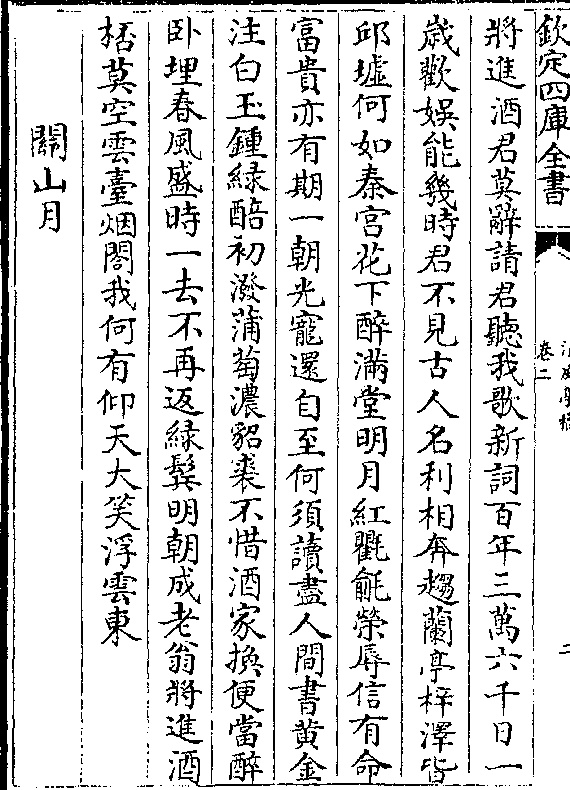 欽定四庫全書
卷二
二
將進酒君莫辭請君聽我歌新詞百年三萬六千日一
歲歡娛能幾時君不見古人名利相奔趨蘭亭梓澤皆
邱墟何如秦宮花下醉滿堂明月紅氍毹榮辱信有命
富貴亦有期一朝光寵還自至何須讀盡人間書黃金
注白玉鍾緑醅初潑蒲萄濃貂裘不惜酒家換便當醉
卧埋春風盛時一去不再返緑鬓明朝成老翁將進酒
桮莫空雲臺烟閣我何有仰天大笑浮雲東
關山月